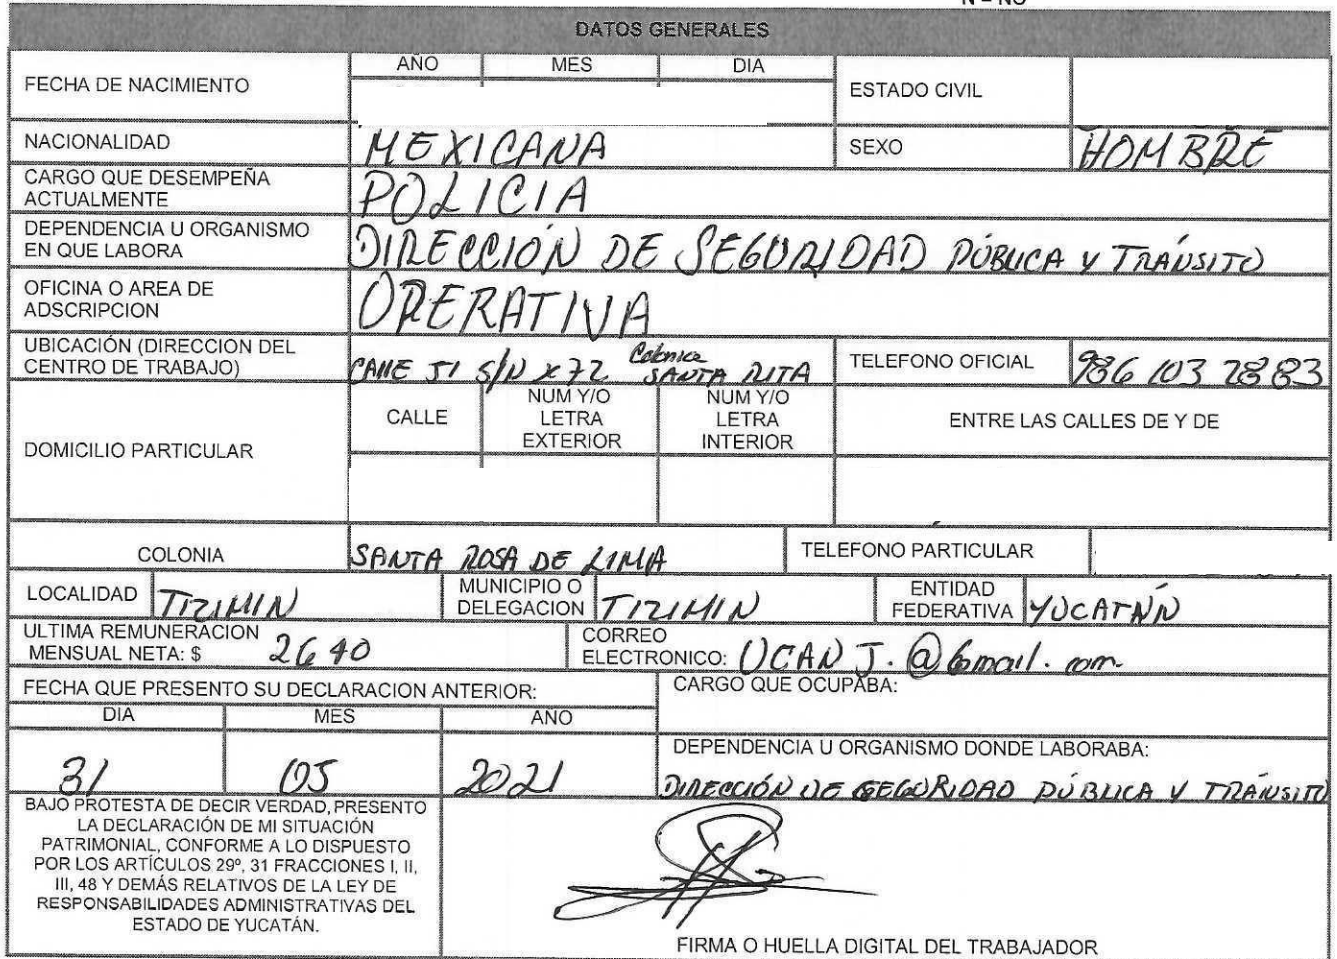 N = NO
DATOS GENERALES
FECHA DE NACIMIENTO
AÑO MES DIA
ESTADO CIVIL
NACIONALIDAD MEXICANA SEXO HOMBRE
CARGO QUE DESEMPEÑA
ACTUALMENTE
POLICIA
DEPENDENCIA U ORGANISMO
EN QUE LABORA
DIRECCIÓN DE SEGURIDAD PÚBLICA Y TRÁNSITO
OFICINA O AREA DE
ADSCRIPCION
OPERATIVA
UBICACIÓN (DIRECCION DEL
CENTRO DE TRABAJO)
CALLE 51 S/N X 72 Colonia
SANTA RITA
TELEFONO OFICIAL 986 103 2883
DOMICILIO PARTICULAR
CALLE
NUM Y/O
LETRA
EXTERIOR
NUM Y/O
LETRA
INTERIOR
ENTRE LAS CALLES DE Y DE
COLONIA SANTA ROSA DE LIMA TELEFONO PARTICULAR
LOCALIDAD TIZIMIN
MUNICIPIO O
DELEGACION TIZIMIN
ENTIDAD
FEDERATIVA YUCATÁN
ULTIMA REMUNERACION
MENSUAL NETA: $ 2640
CORREO
ELECTRONICO: UCAN J. @ Gmail. com.
FECHA QUE PRESENTO SU DECLARACION ANTERIOR:
CARGO QUE OCUPABA:
DIA MES AÑO
31 05 2021
DEPENDENCIA U ORGANISMO DONDE LABORABA:
DIRECCIÓN DE SEGURIDAD PÚBLICA Y TRÁNSITO
BAJO PROTESTA DE DECIR VERDAD, PRESENTO
LA DECLARACIÓN DE MI SITUACIÓN
PATRIMONIAL, CONFORME A LO DISPUESTO
POR LOS ARTÍCULOS 29º, 31 FRACCIONES I, II,
III, 48 Y DEMÁS RELATIVOS DE LA LEY DE
RESPONSABILIDADES ADMINISTRATIVAS DEL
ESTADO DE YUCATÁN.
FIRMA O HUELLA DIGITAL DEL TRABAJADOR